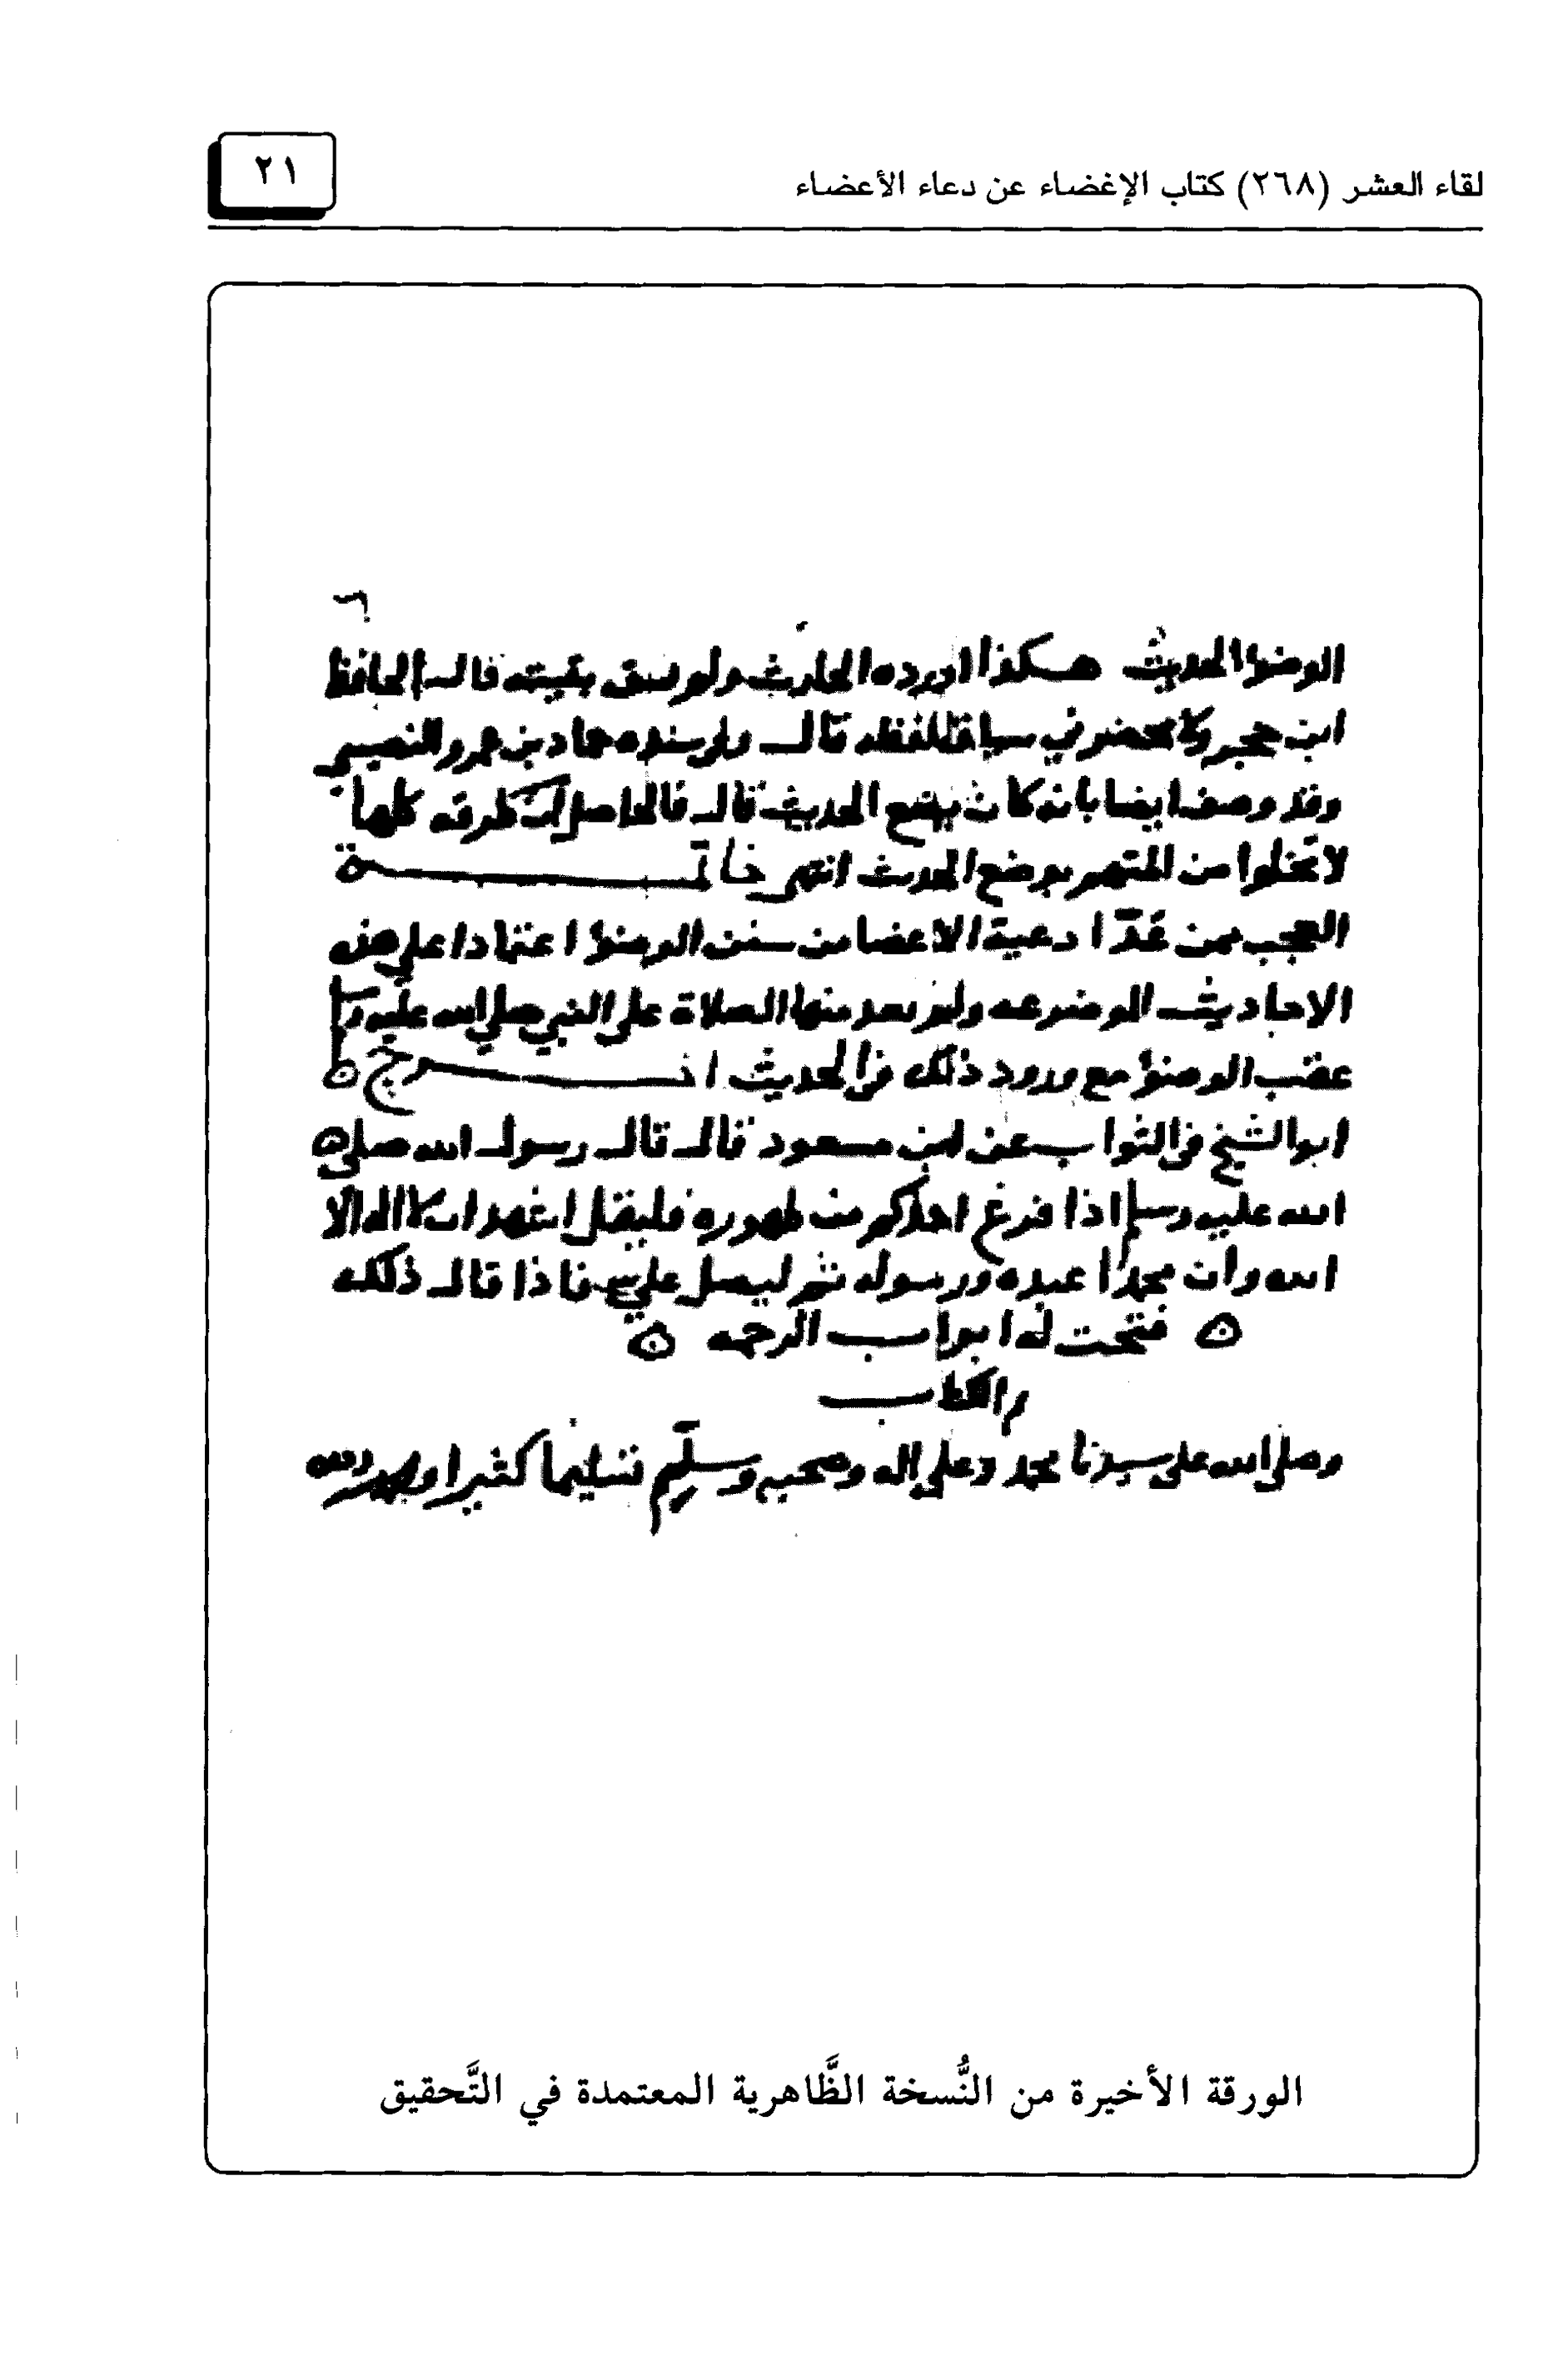 لقاء العشر (٢٦٨) كتاب الإغضاء عن دعاء الأعضاء
٢١
٦
الوضؤ الحديث هكذا اورده الحارث ولم يسق بقيته قال الحافظ
ابن حجر ولا يحضرني سياق لفظه قال وفي سنده حماد بن عمرو النصيبي
وقد وصف ايضا بانه كان يضع الحديث قال فالحاصل ان طرقه كلها
لا تخلوا من المتهم بوضع الحديث انتهى خاتمة
العجب ممن عدّ ادعية الاعضا من سنن الوضؤ اعتمادا على هذه
الاحاديث الموضوعه ولم يعد منها الصلاة على النبي صلى الله عليه وسلم
عقب الوضؤ مع ورود ذلك في الحديث اخرج
ابو الشيخ في الثواب عن ابن مسعود قال قال رسول الله صلى
الله عليه وسلم اذا فرغ احدكم من طهوره فليقل اشهد ان لا اله الا
الله وان محمدا عبده ورسوله ثم ليصل علي فاذا قال ذلك
فتحت له ابواب الرحمه
الكتاب
وصلى الله على سيدنا محمد وعلى اله وصحبه وسلم تسليما كثيرا
الورقة الأخيرة من النُّسخة الظَّاهرية المعتمدة في التَّحقيق